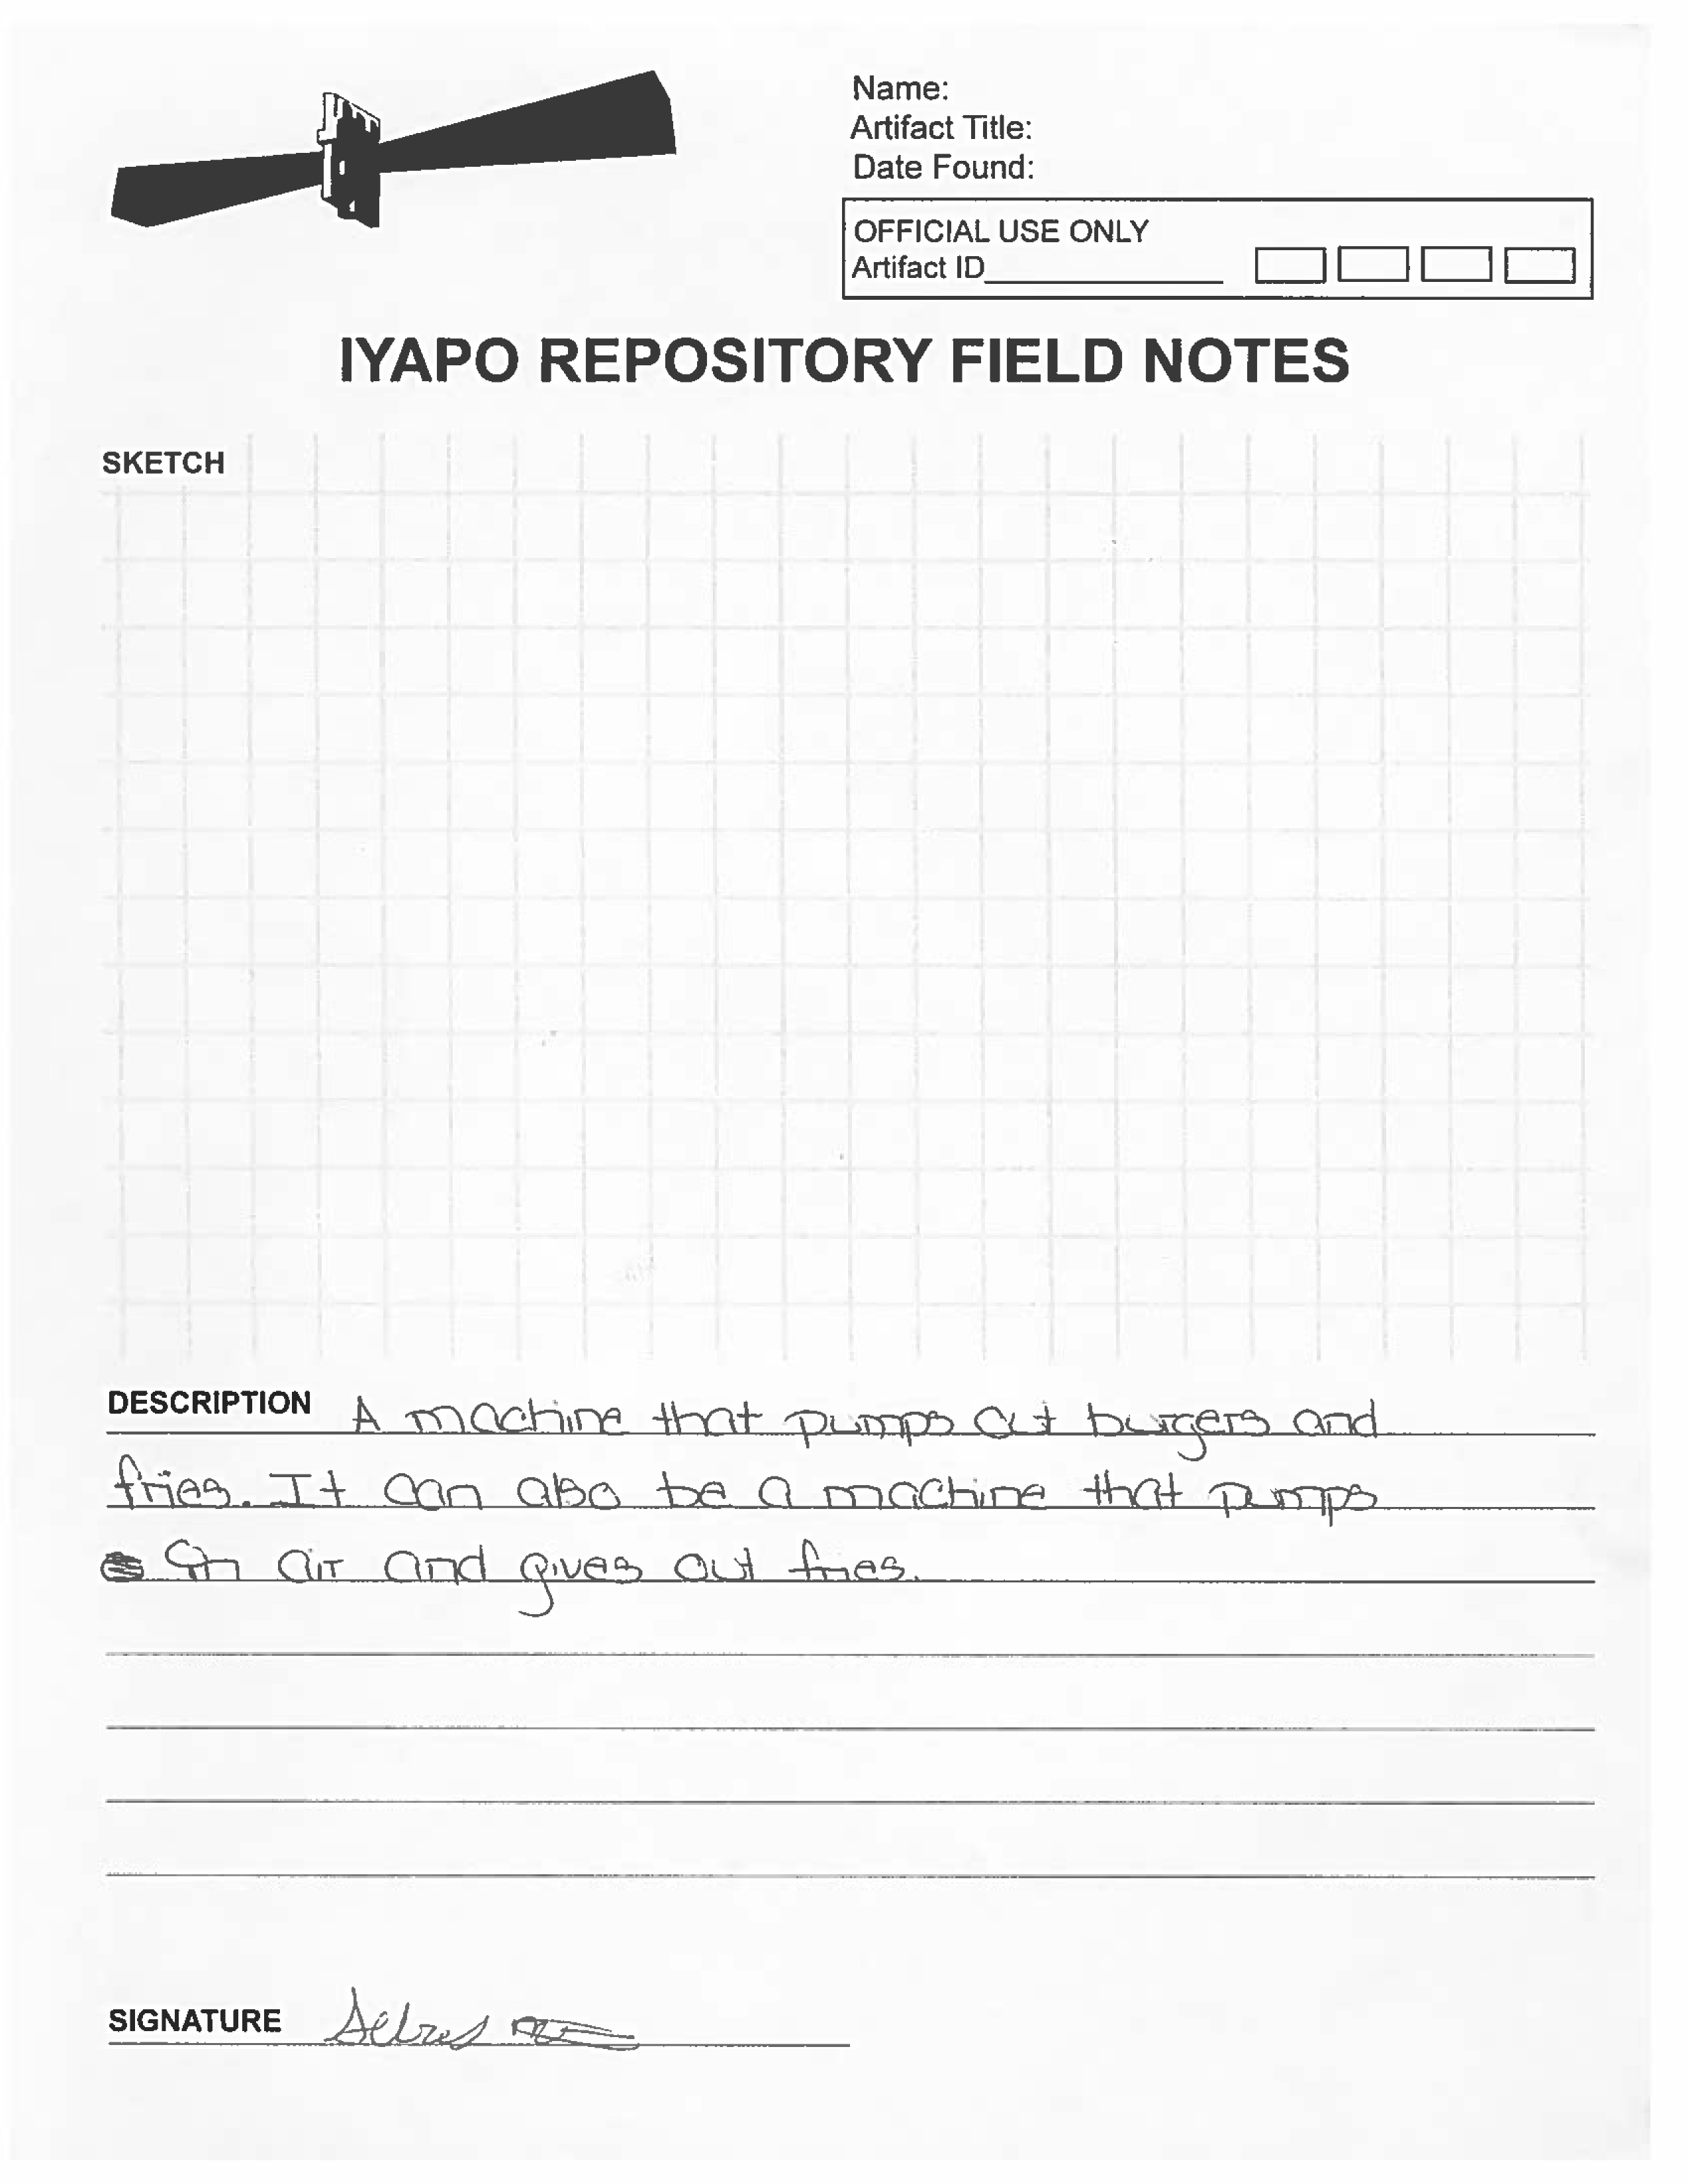 Name:
Artifact Title:
Date Found:
OFFICIAL USE ONLY
Artifact ID
IYAPO REPOSITORY FIELD NOTES
SKETCH
DESCRIPTION A machine that pumps out burgers and
fries. It can also be a machine that pumps
in air and gives out fries.
SIGNATURE